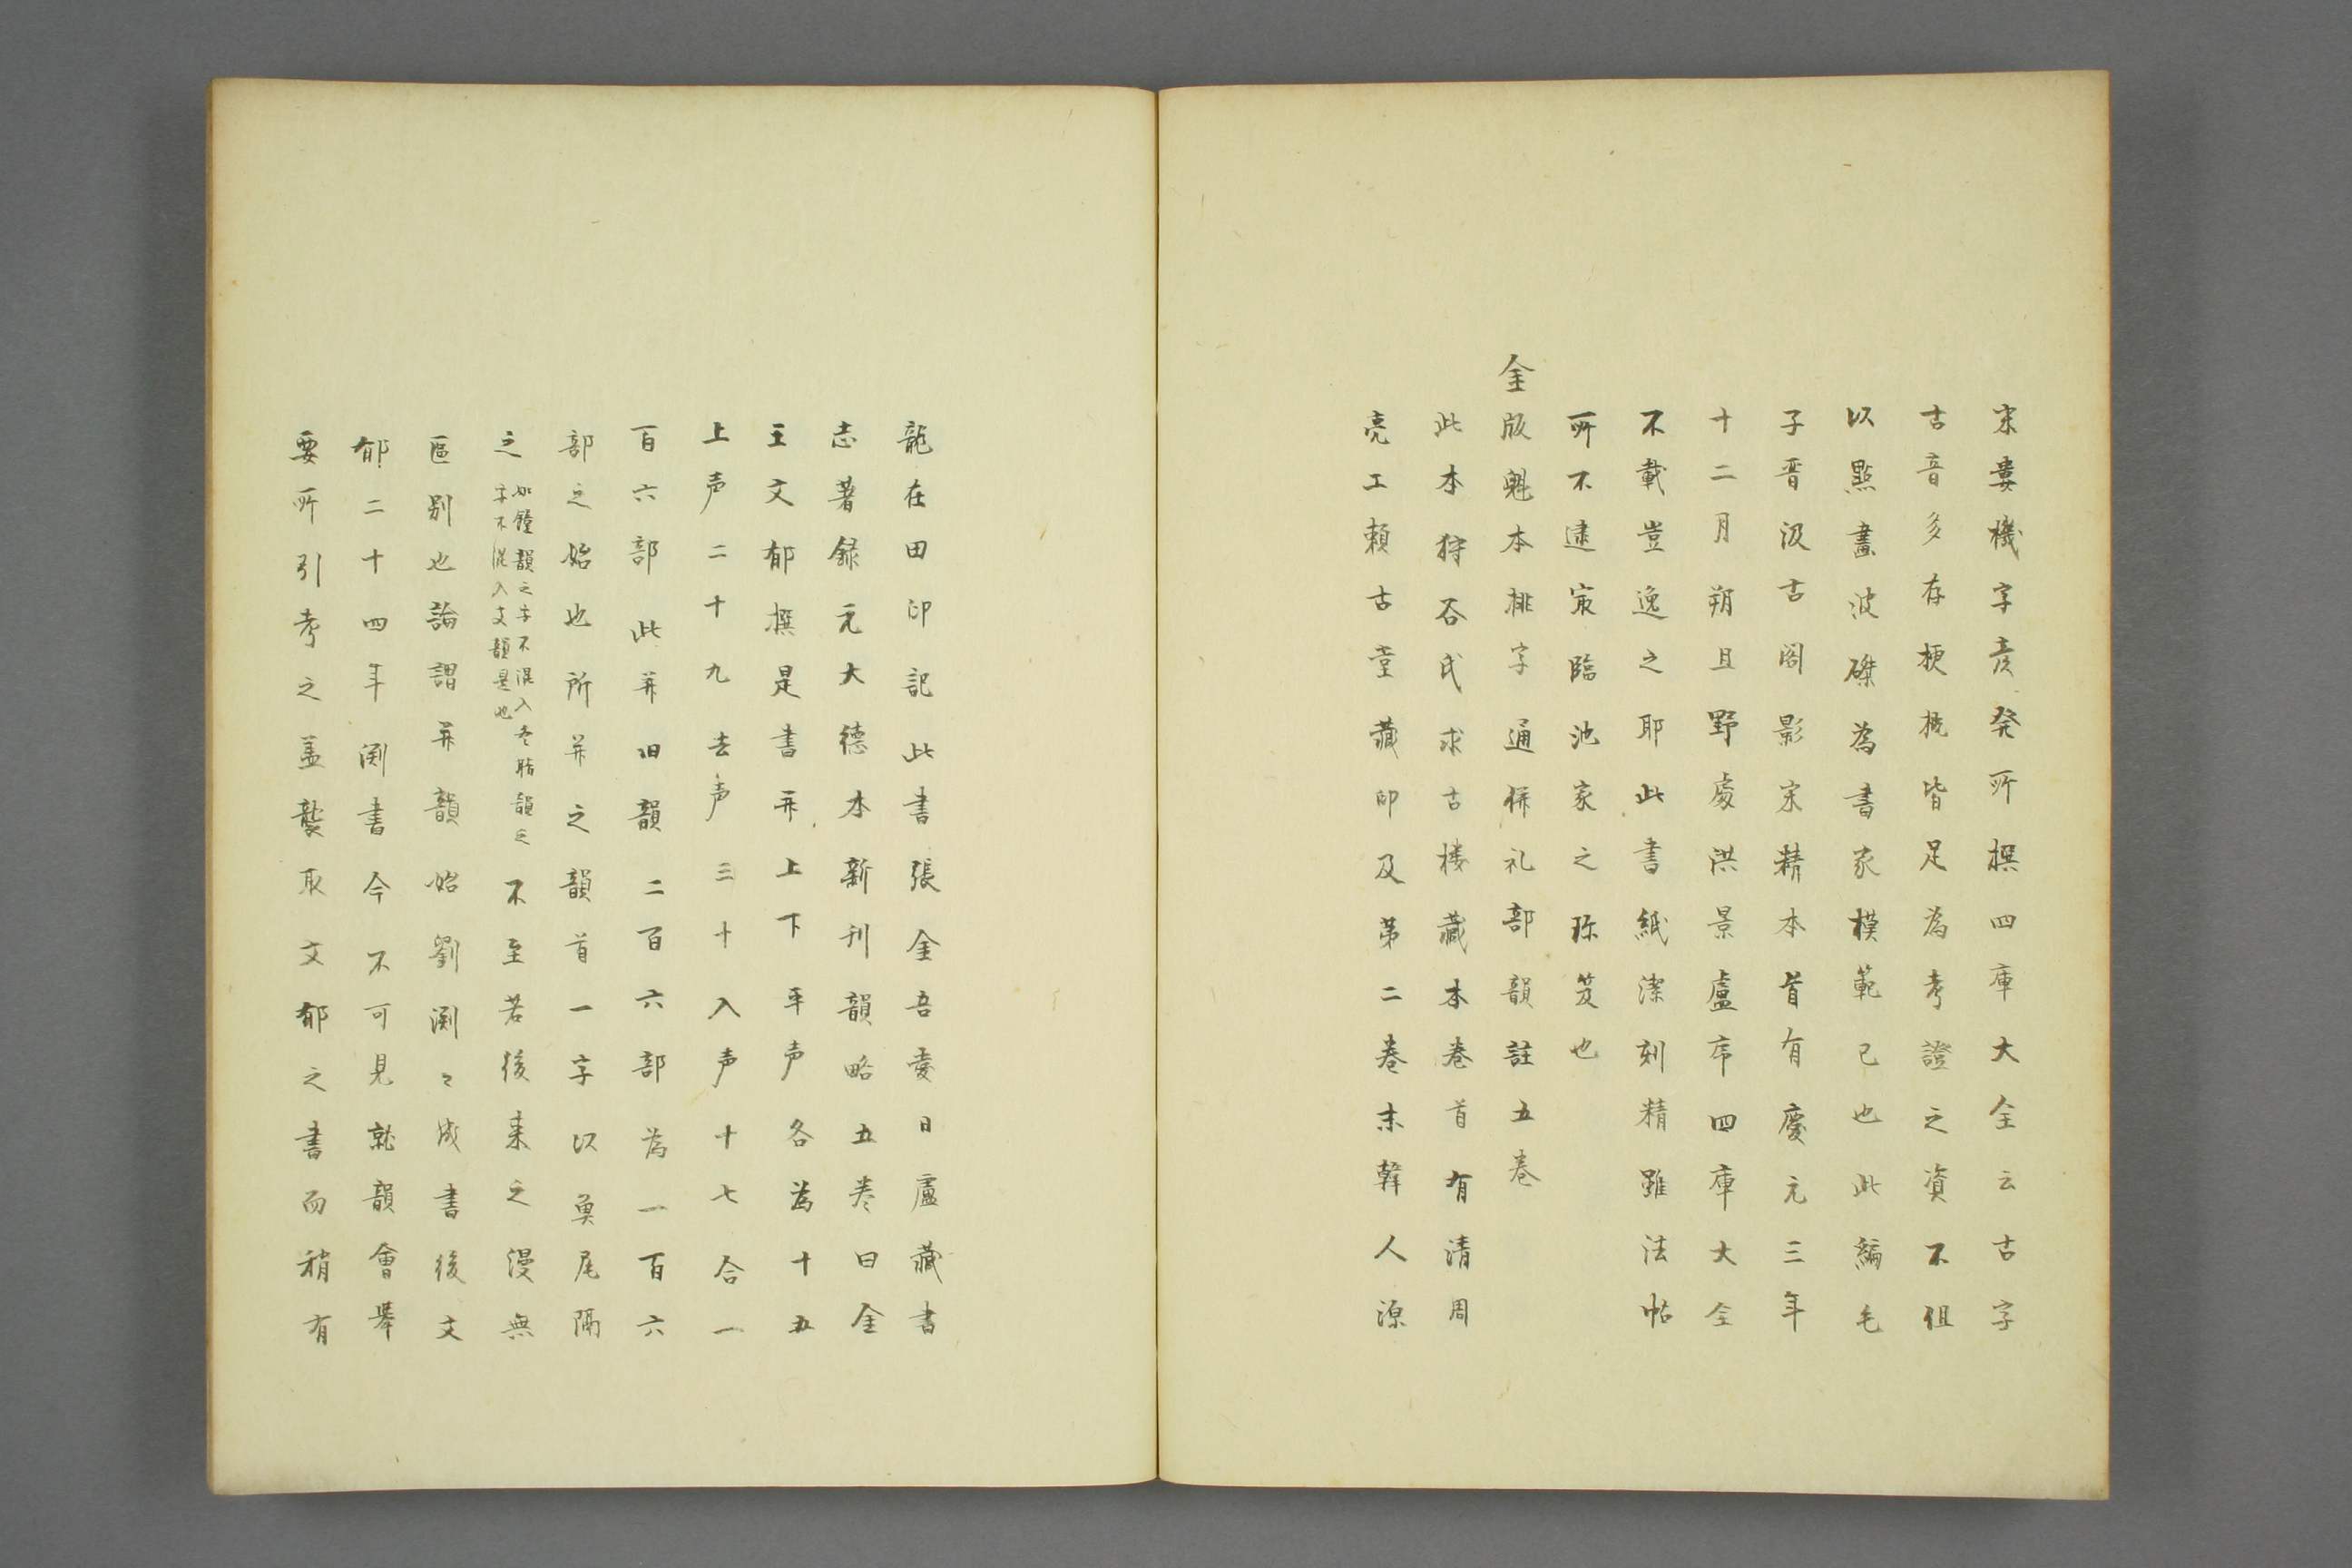 宋婁機字彦発所撰四庫大全云古字
古音多存梗概皆足為考證之資不但
以點畫波磔為書家模範已也此編毛
子晋汲古閣影宋精本首有慶元三年
十二月朔旦野處洪景盧序四庫大全
不載豈逸之耶此書紙潔刻精雖法帖
所不逮寔臨池家之珎笈也
金版魁本排字通併礼部韻註五巻
此本狩谷氏求古楼藏本巻首有清周
亮工頼古堂藏印及第二巻末韓人源
龍在田印記此書張金吾愛日盧藏書
志著録元大德本新刊韻略五巻曰金
王文郁撰是書并上下平声各為十五
上声二十九去声三十入声十七合一
百六部此并旧韻二百六部為一百六
部之始也所并之韻首一字以魚尾隔
之如鐘韻之字不混入冬脂韻之
字不混入支韻是也不至若後来之漫無
區别也論謂并韻始劉渕々成書後文
郁二十四年渕書今不可見就韻會舉
要所引考之盖襲取文郁之書而稍有